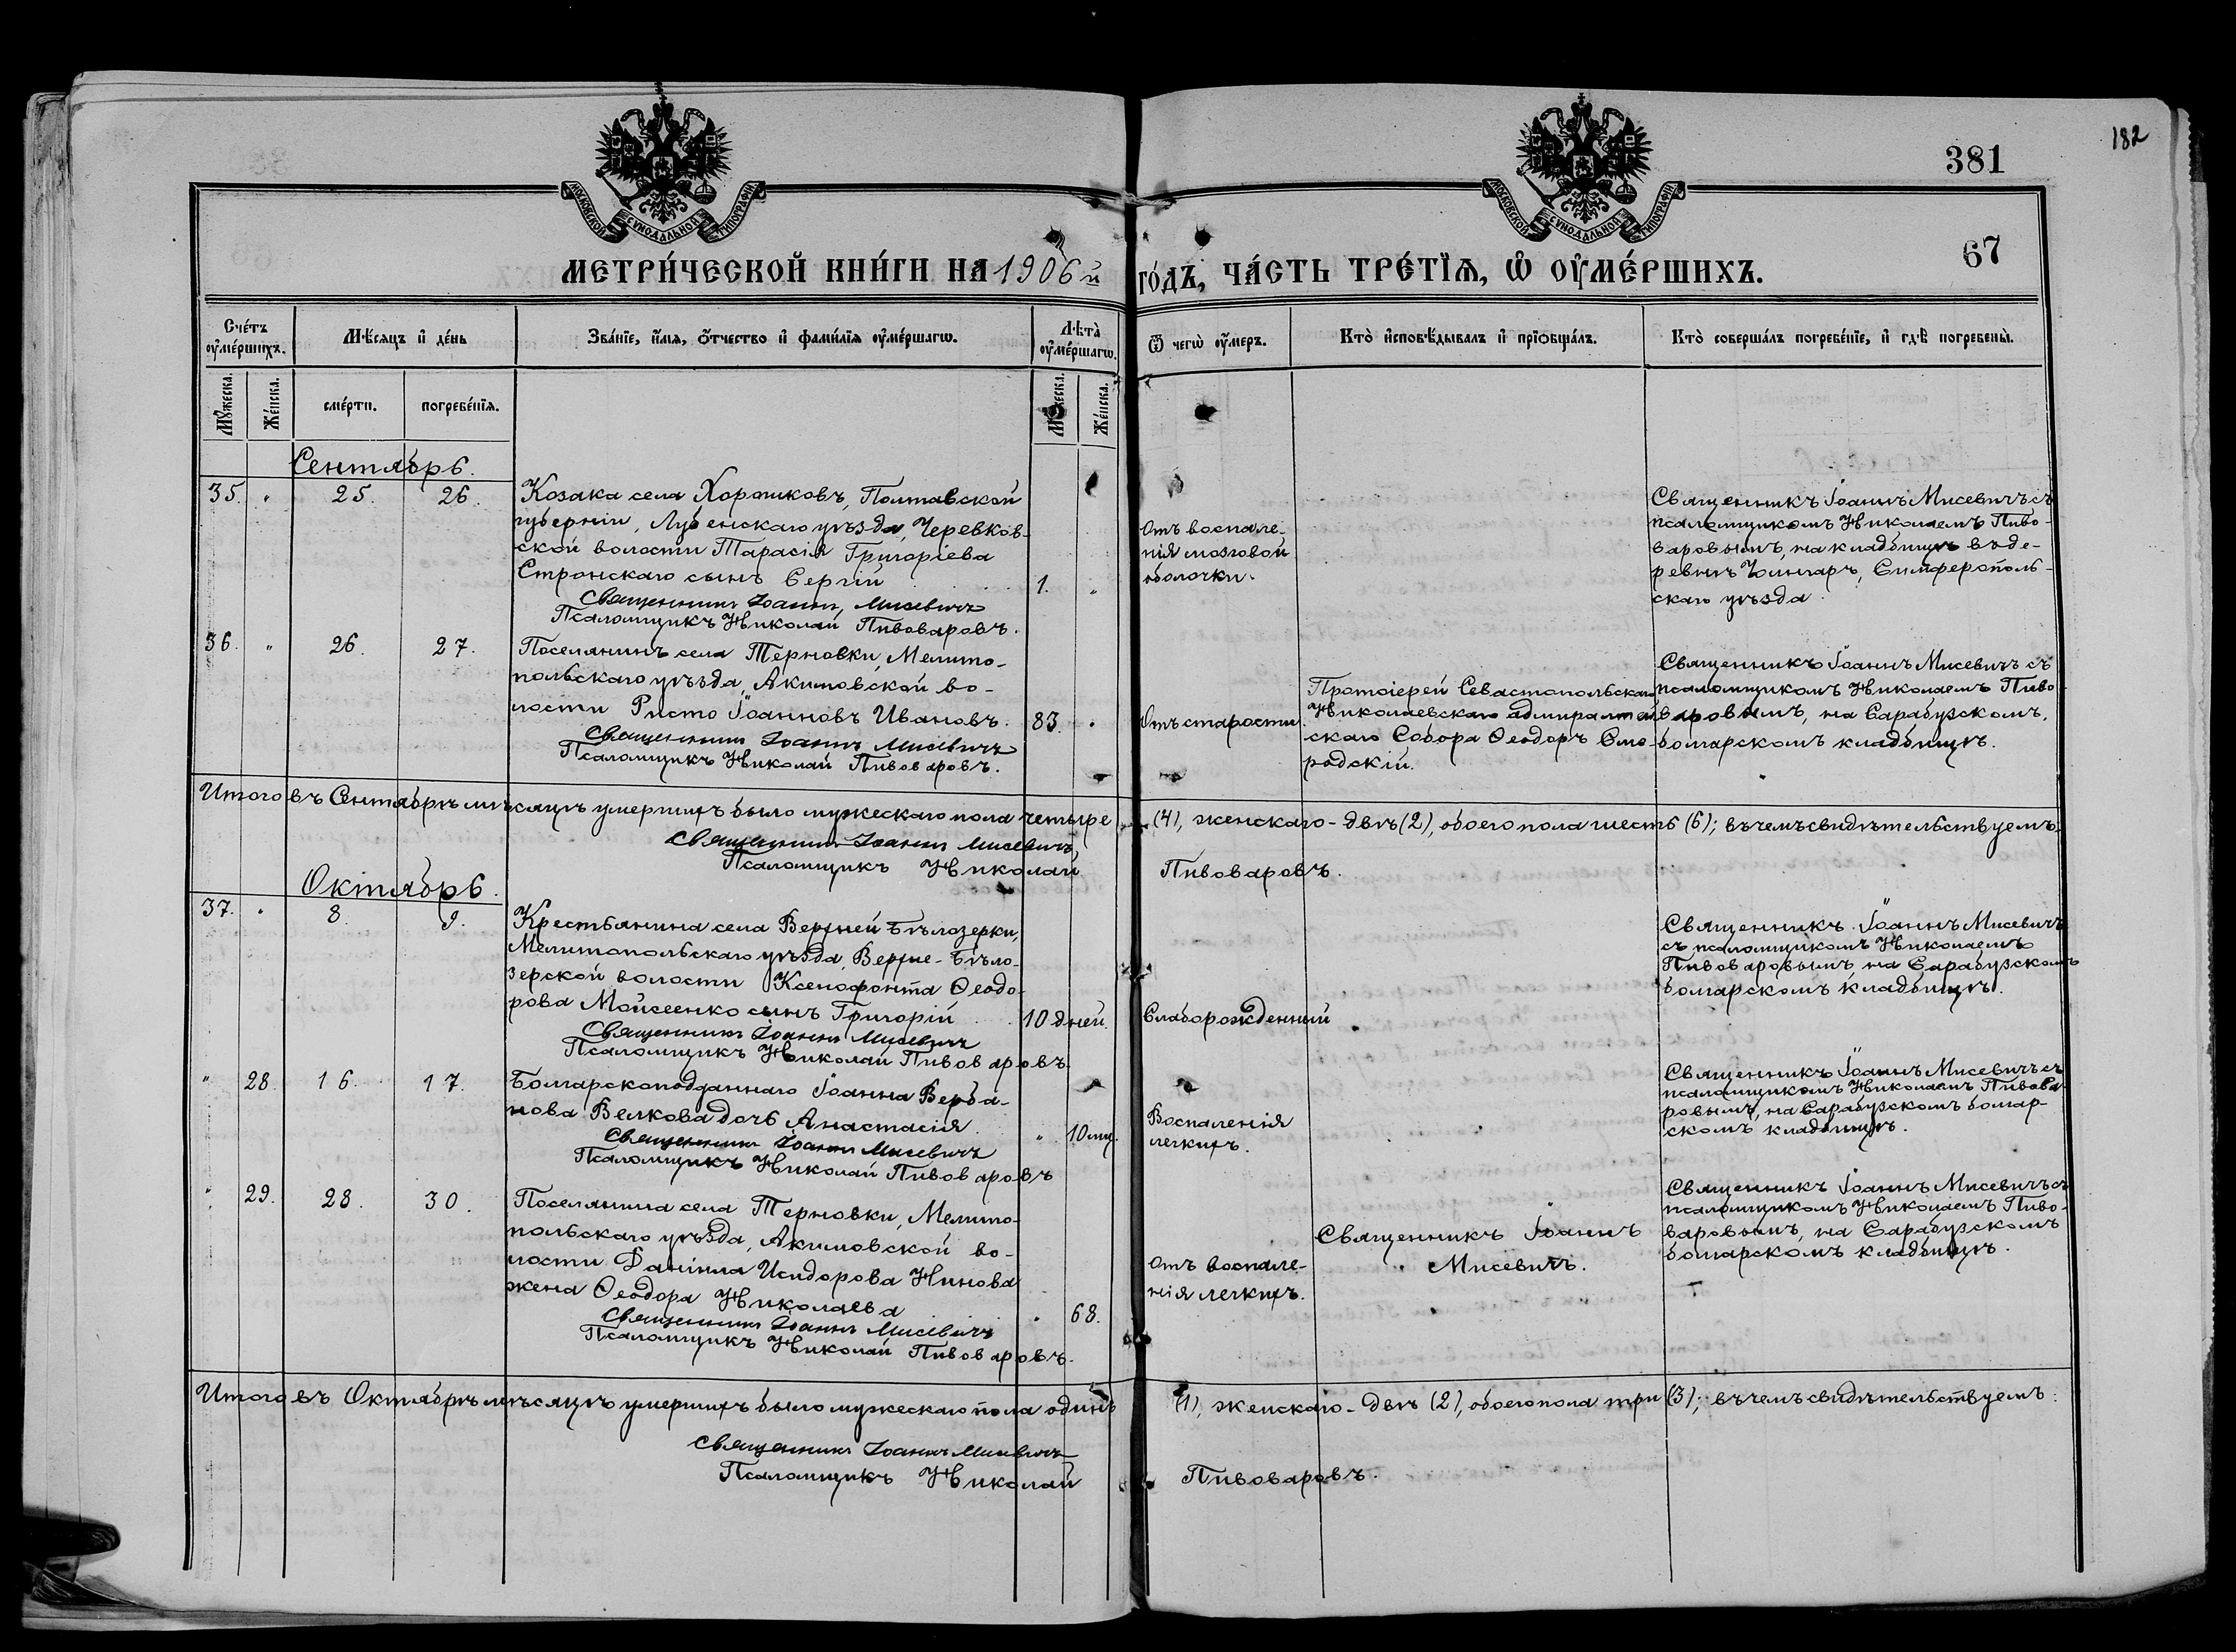 182
381
67
МОСКОВСКОЙ СѴНОДАЛЬНОЙ ТИПОГРАФІИ
МОСКОВСКОЙ СѴНОДАЛЬНОЙ ТИПОГРАФІИ
МЕТРИ́ЧЕСКОЙ КНИ́ГИ НА 1906 й го́дъ, ЧА́СТЬ ТРЕ́ТЇѦ, Ѡ ОУ҆МЕ́РШИХЪ.
Сче́тъ оу҆ме́ршихъ.
Мѣ́сяцъ и҆ де́нь
Зва́нїе, и҆́мя, ѻ҆́тчество и҆ фами́лїя оу҆ме́ршагѡ.
Лѣ́та оу҆ме́ршагѡ.
Ѿ чегѡ̀ оу҆́меръ.
Кто̀ и҆сповѣ́дывалъ и҆ прїѡбща́лъ.
Кто̀ соверша́лъ погребе́нїе, и҆ гдѣ̀ погребены̀.
Му́жеска.
Же́нска.
сме́рти.
погребе́нїя.
Му́жеска.
Же́нска.
Сентябрь.
35. " 25. 26.
Козака села Хорошковъ, Полтавской
губерніи, Лубенскаго уѣзда, Черевков-
ской волости Тарасія Григоріева
Стронскаго сынъ Сергій
1. "
Священникъ Іоаннъ Мисевичъ
Псаломщикъ Николай Пивоваровъ.
Отъ воспале-
нія мозговой
оболочки.
Священникъ Іоаннъ Мисевичъ съ
псаломщикомъ Николаемъ Пиво-
варовымъ, на кладбищѣ въ де-
ревнѣ Чонгаръ, Симферополь-
скаго уѣзда.
36. " 26. 27.
Поселянинъ села Терновки, Мелито-
польскаго уѣзда, Акимовской во-
лости Ристо Іоанновъ Ивановъ.
83. "
Священникъ Іоаннъ Мисевичъ
Псаломщикъ Николай Пивоваровъ.
Отъ старости.
Протоіерей Севастопольскаго
Николаевскаго адмиралтей
скаго Собора Ѳеодоръ Смо-
родскій.
Священникъ Іоаннъ Мисевичъ съ
псаломщикомъ Николаемъ Пиво-
варовымъ, на Сарабузскомъ,
болгарскомъ кладбищѣ.
Итого въ Сентябрѣ мѣсяцѣ умершихъ было мужескаго пола четыре (4), женскаго - двѣ (2), обоего пола шесть (6); въ чемъ свидѣтельствуемъ:
Священникъ Іоаннъ Мисевичъ
Псаломщикъ Николай Пивоваровъ.
Октябрь.
37. " 8. 9.
Крестьянина села Верхней Бѣлозерки,
Мелитопольскаго уѣзда, Верхне-Бѣло-
зерской волости Ксенофонта Ѳеодо-
рова Мойсеенко сынъ Григорій
10 дней.
Священникъ Іоаннъ Мисевичъ
Псаломщикъ Николай Пивоваровъ.
Слаборожденный
Священникъ Іоаннъ Мисевичъ
съ псаломщикомъ Николаемъ
Пивоваровымъ на Сарабузскомъ
болгарскомъ кладбищѣ.
" 28. 16. 17.
Болгарскоподданнаго Іоанна Верба-
нова Велкова дочь Анастасія.
" 10 мц.
Священникъ Іоаннъ Мисевичъ
Псаломщикъ Николай Пивоваровъ
Воспаленія
легкихъ.
Священникъ Іоаннъ Мисевичъ съ
псаломщикомъ Николаемъ Пивова
ровымъ, на Сарабузскомъ болгар-
скомъ кладбищѣ.
" 29. 28. 30.
Поселянина села Терновки, Мелито-
польскаго уѣзда, Акимовской во-
лости Даніила Исидорова Нинова
жена Ѳеодора Николаева
" 68.
Священникъ Іоаннъ Мисевичъ
Псаломщикъ Николай Пивоваровъ.
Отъ воспале-
нія легкихъ.
Священникъ Іоаннъ
Мисевичъ.
Священникъ Іоаннъ Мисевичъ съ
псаломщикомъ Николаемъ Пиво-
варовымъ, на Сарабузскомъ
болгарскомъ кладбищѣ.
Итого въ Октябрѣ мѣсяцѣ умершихъ было мужескаго пола одинъ (1), женскаго - двѣ (2), обоего пола три (3); въ чемъ свидѣтельствуемъ:
Священникъ Іоаннъ Мисевичъ
Псаломщикъ Николай Пивоваровъ.